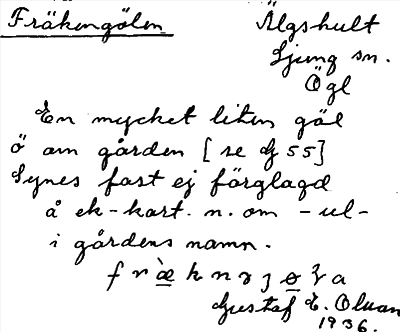 Fräkengölen Älgshult
Ljung sn.
Ögl
En mycket liten göl
ö om gården [se G 55]
Synes fast ej förglagd
å ek-kart. n. om -ul-
i gårdens namn.
Gustaf E. Olson
1936.